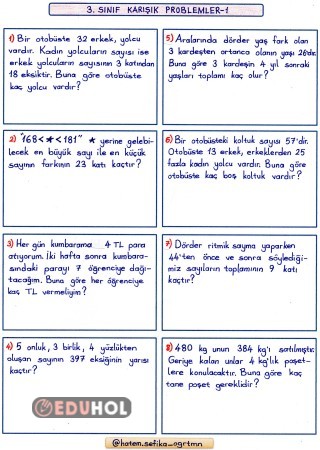 3. SINIF KARIŞIK PROBLEMLER-1
1) Bir otobüste 32 erkek, yolcu
vardır. Kadın yolcuların sayısı ise
erkek yolcuların sayısının 3 katından
18 eksiktir. Buna göre otobüste
kaç yolcu vardır?
5) Aralarında dörder yaş fark olan
3 kardeşten ortanca olanın yaşı 26'dır.
Buna göre 3 kardeşin 4 yıl sonraki
yaşları toplamı kaç olur?
2) "168<*<181" * yerine gelebi-
lecek en büyük sayı ile en küçük
sayının farkının 23 katı kaçtır?
6) Bir otobüsteki koltuk sayısı 57'dir.
Otobüste 13 erkek, erkeklerden 25
fazla kadın yolcu vardır. Buna göre
otobüste kaç boş koltuk vardır?
3) Her gün kumbarama 4 TL para
atıyorum. İki hafta sonra kumbara-
sındaki parayı 7 öğrenciye dağı-
tacağım. Buna göre her öğrenciye
kaç TL vermeliyim?
7) Dörder ritmik sayma yaparken
44'ten önce ve sonra söylediği-
miz sayıların toplamının 9 katı
kaçtır?
4) 5 onluk, 3 birlik, 4 yüzlükten
oluşan sayının 397 eksiğinin yarısı
kaçtır?
8) 480 kg unun 384 kg'ı satılmıştır.
Geriye kalan unlar 4 kg'lık poşet-
lere konulacaktır. Buna göre kaç
tane poşet gereklidir?
EDUHOL
@hatem.sefika_ogrtmn